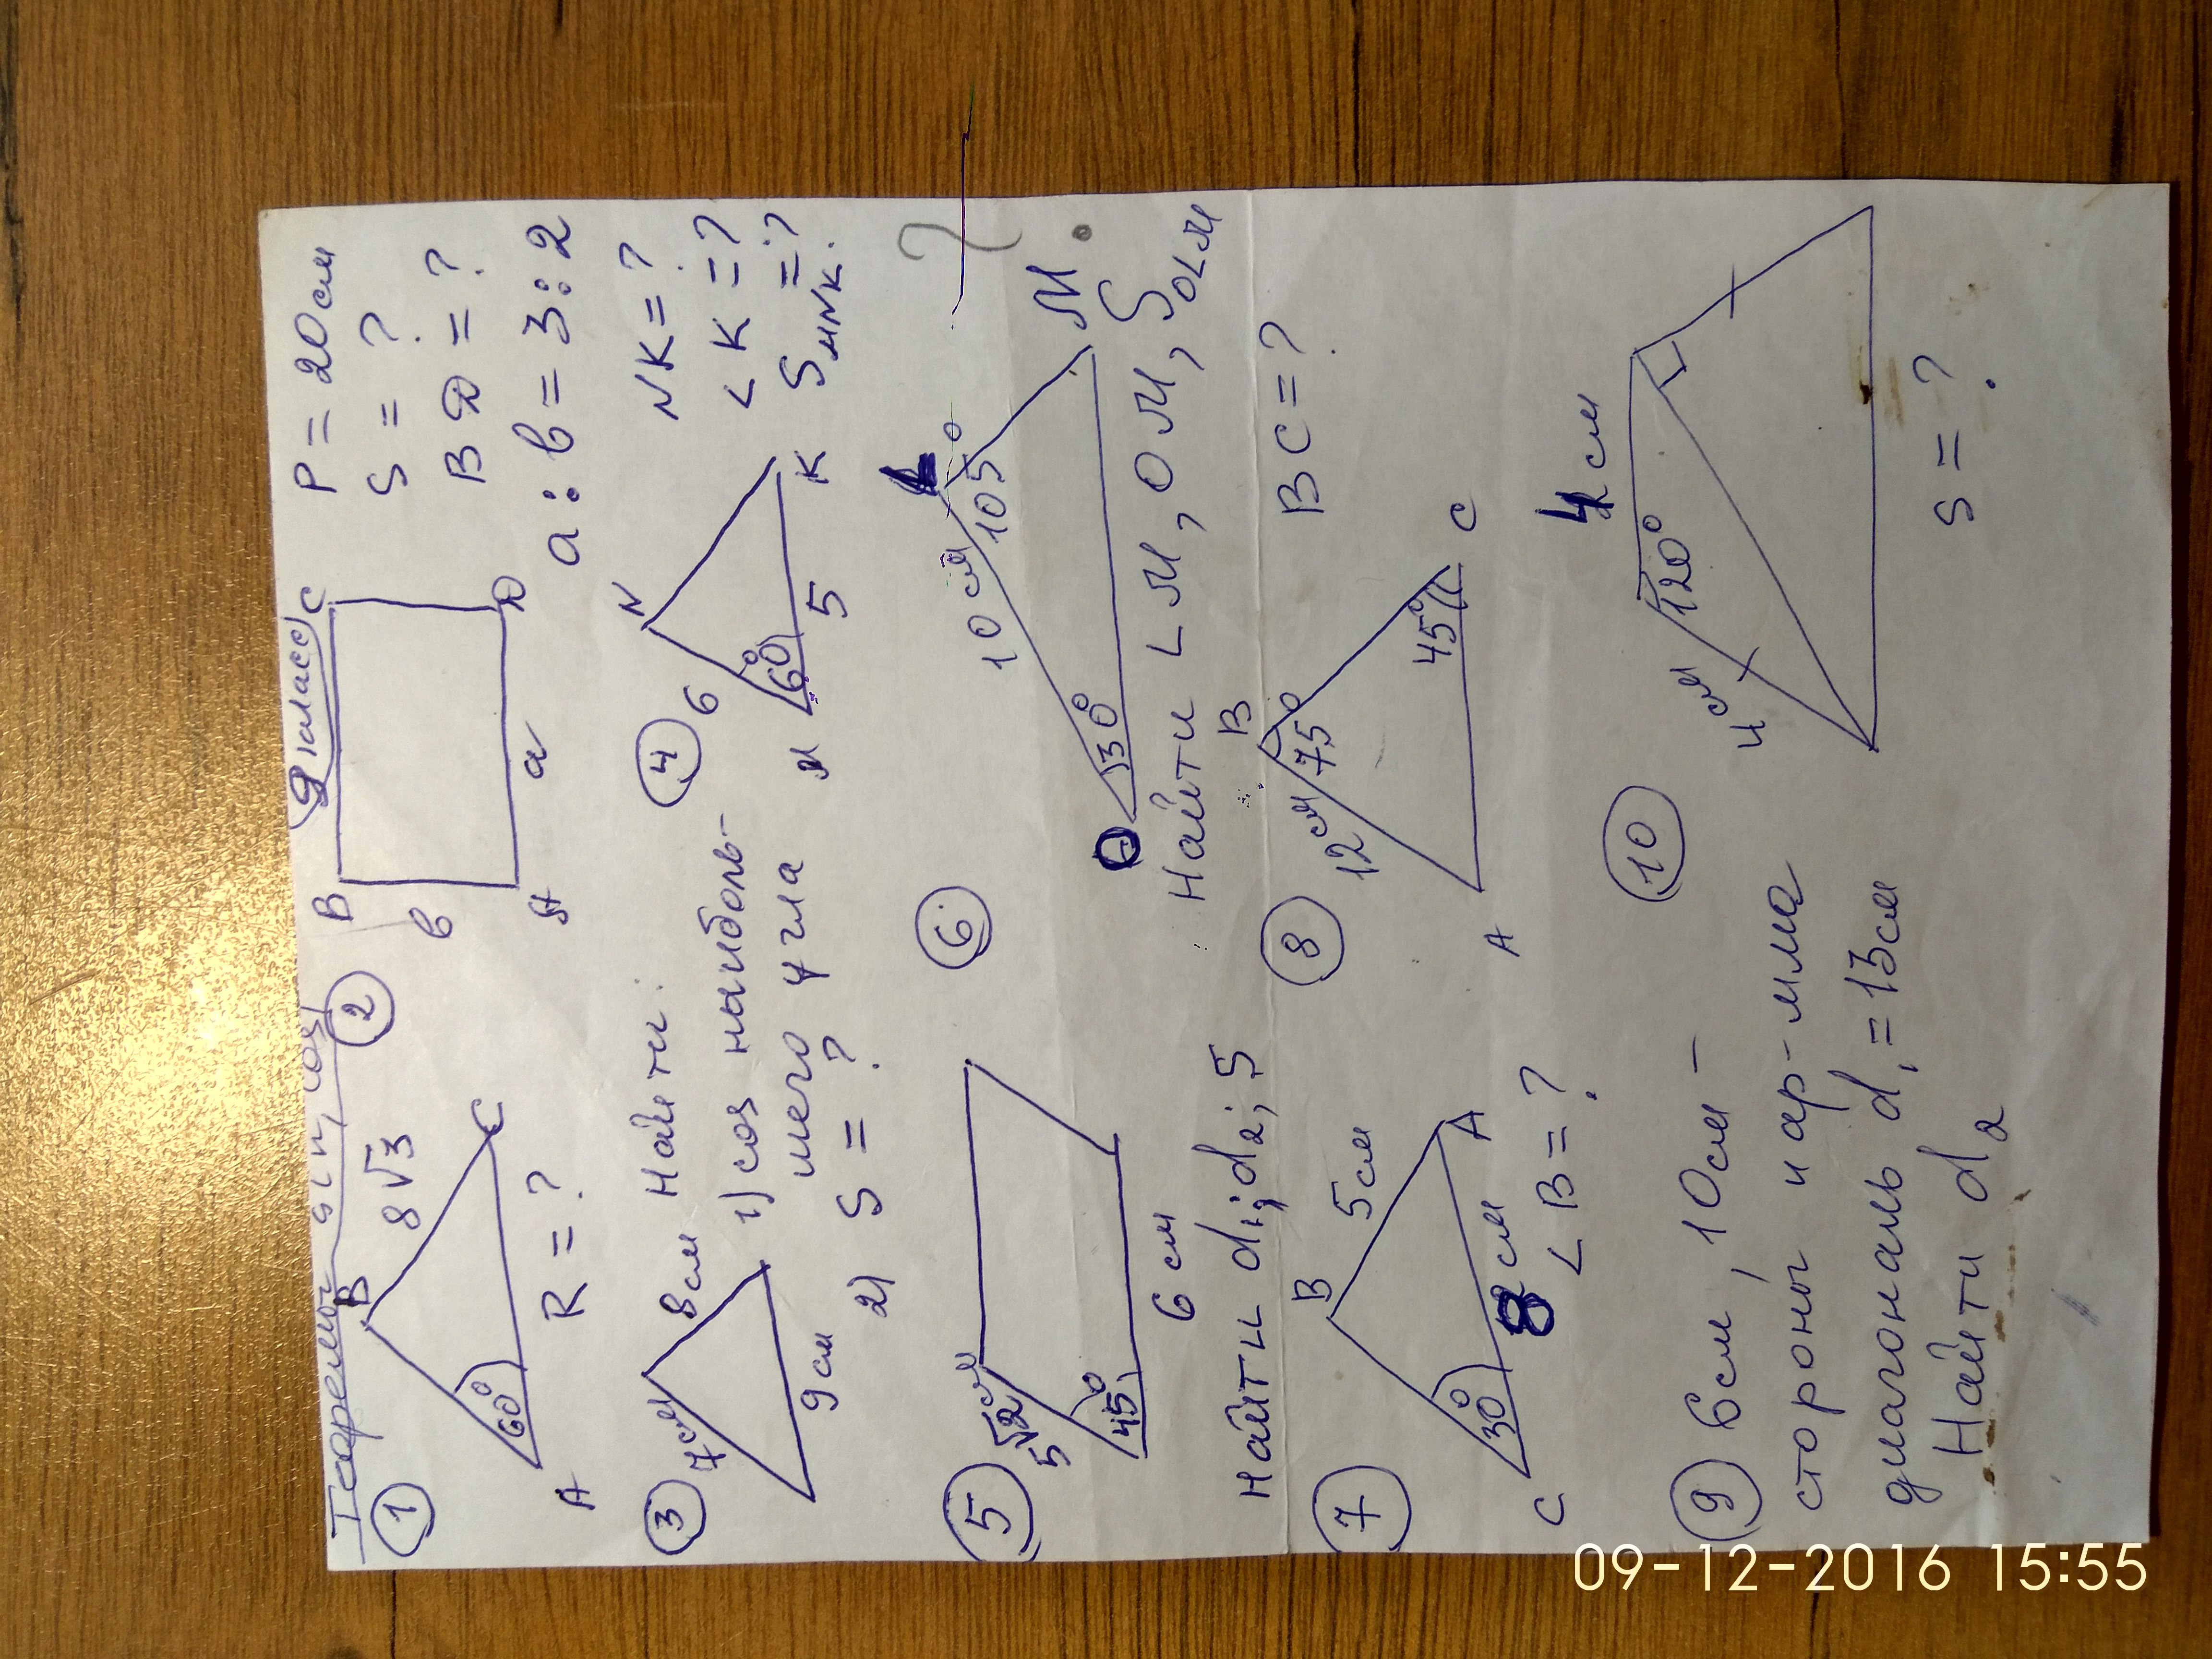 Теоремы sin, cos
9 класс
1
B
8√3
C
60°
A
R = ?
2
B
C
в
A
а
D
P = 20 см
S = ?
BD = ?
a : b = 3 : 2
3
7 см
8 см
9 см
Найти:
1) cos наиболь-
шего угла
2) S = ?
4
N
6
60°
M
5
K
NK = ?
∠K = ?
S MNK = ?
5
5√2 см
45°
6 см
Найти d₁; d₂; S
6
L
10 см
105°
30°
O
M
?
Найти LM, OM, S OLM
7
B
5 см
30°
C
8 см
A
∠B = ?
8
B
12 см
75°
45°
A
C
BC = ?
9
6 см, 10 см –
стороны пар-мма
диагональ d₁ = 13 см
Найти d₂
10
4 см
4 см
120°
S = ?
09-12-2016 15:55